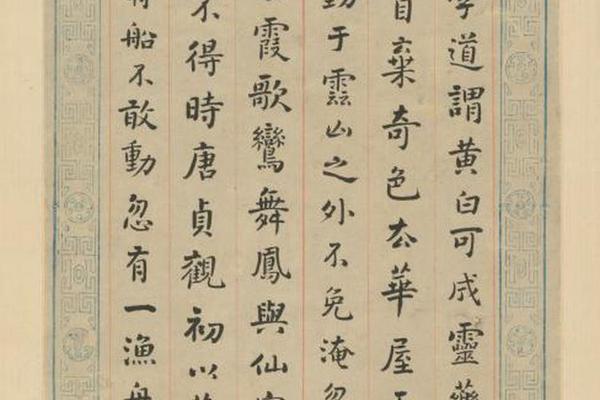 道謂黃白可成靈藥
棄奇色厺華屋
于霊山之外不免淹忽
霞歌鸞舞鳳與仙
不得時唐貞觀初以
船不敢動忽有一漁舟